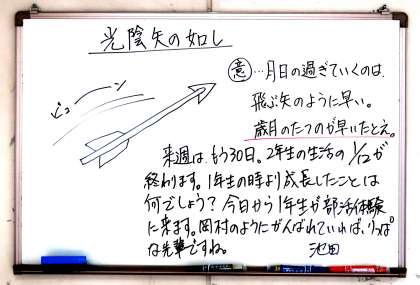 光陰矢の如し
意…月日の過ぎていくのは、
飛ぶ矢のように早い。
歳月のたつのが早いたとえ。
ビューン
来週は、もう30日。2年生の生活の1/12が
終わります。1年生の時より成長したことは
何でしょう？今日から1年生が部活体験
に来ます。岡村のようにがんばれていれば、りっぱ
な先輩ですね。 池田